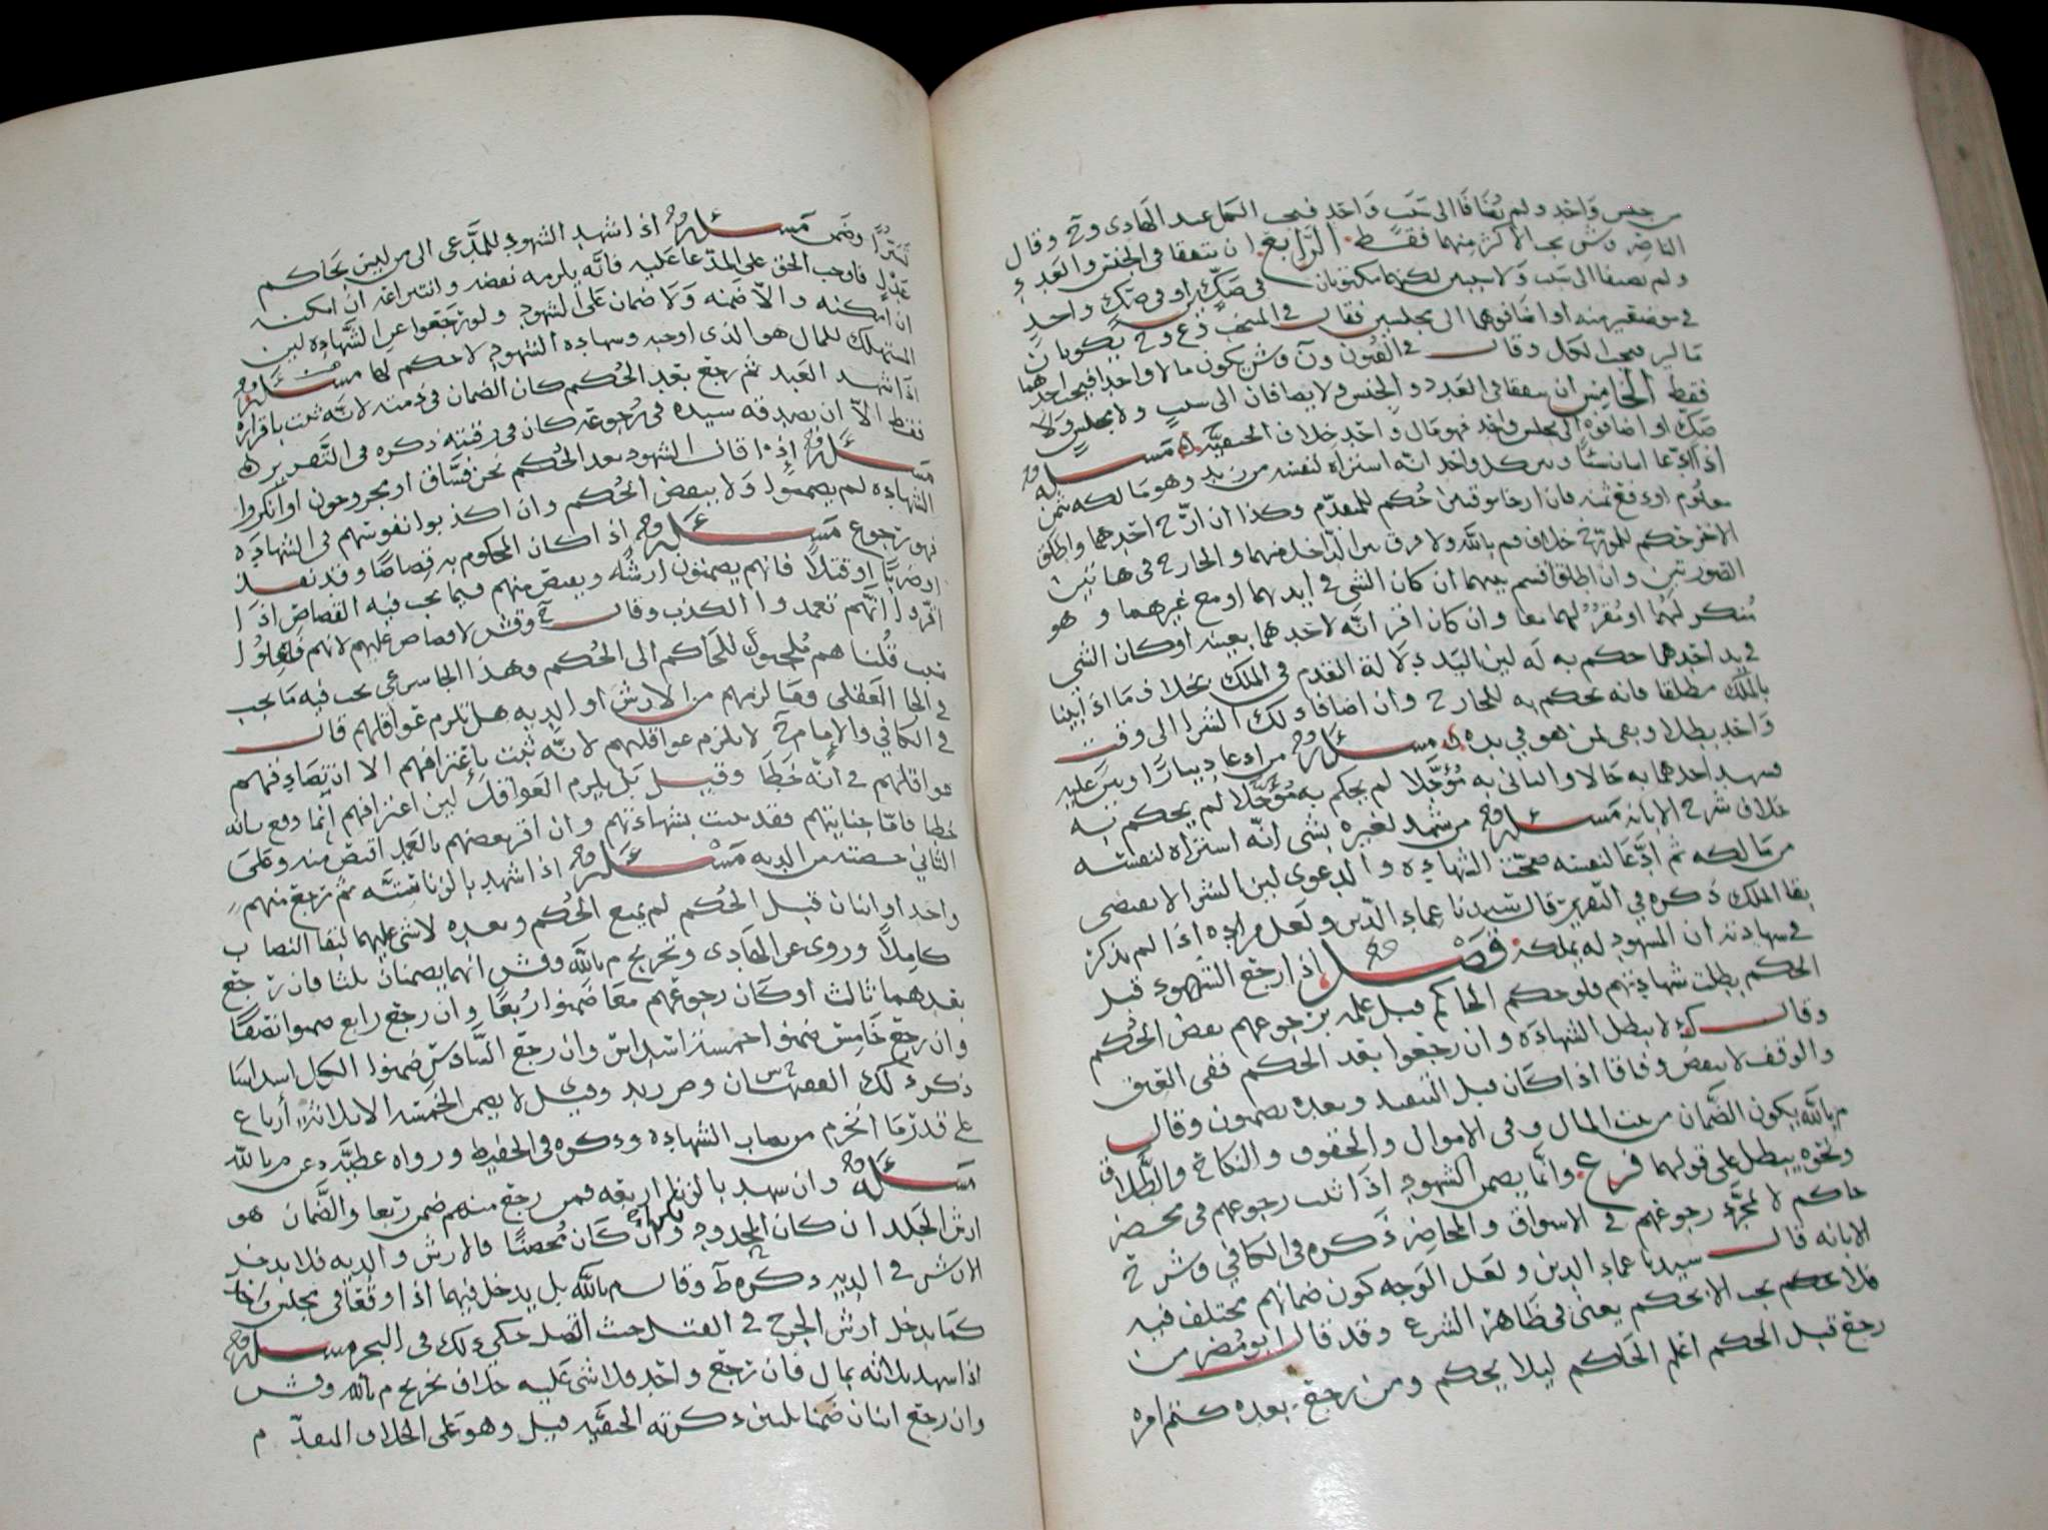 من جنس واحد ولم يضافا الى سبب واحد فيجب الجماعند الهادي وح وقال
الناصر وش يجب الاكثر منهما فقط الرابع ان يتفقا في الجنس والعدد
ولم يضيفا الى سبب ولا سببين لكنهما مكتوبان في صكين او في صك واحد
في موضعين منه او اضافوهما الى مجلسين فقال في المنتخب وع وح يكونان
مالين فيجب الكل وقال في الفنون ون وش يكون مالا واحدا فيجب احدهما
فقط الخامس ان يتفقا في العدد والجنس ولا يضافان الى سبب ولا مجلس ولا
صك او اضافوه الى مجلس واحد فهو مال واحد خلاف الحنفية مسئلة
اذا ادعا اثنان شيئا وبين كل واحد انه اشتراه لنفسه من زيد وهو مالكه بثمن
معلوم او دفع ثمنه فان ارخا بوقتين حكم للمتقدم وكذا ان ارخ احدهما واطلق
الاخر حكم للمورخ خلاف م بالله ولا فرق بين الداخل منهما والخارج في هاتين
الصورتين وان اطلقا قسم بينهما ان كان الشي في ايديهما او مع غيرهما وهو
منكر لهما او مقر لهما معا وان كان اقر انه لاحدهما بعينه او كان الشي
في يد احدهما حكم به له لين اليد دلالة التقدم في الملك بخلاف ما اذا بينا
بالملك مطلقا فانه يحكم به للخارج وان اضافا ذلك الشرا الى وقت
واحد بطلا وبقي لمن هو في يده مسئلة من ادعا دينارا وبين عليه
فشهد احدهما به حالا والثاني به مؤجلا لم يحكم به مؤجلا لم يحكم به
خلاف شرح الابانه مسئلة من شهد لغيره بشي انه اشتراه لنفسه
من مالكه ثم ادعا لنفسه صحت الشهادة والدعوى لين الشرا لا يقتضي
بقا الملك ذكره في التقرير قال سيدنا عماد الدين ولعل مراده اذا لم يذكر
في شهادته ان المشهود له يملكه فصل اذا رجع الشهود قبل
الحكم بطلت شهادتهم فلو حكم الحاكم قبل علمه برجوعهم نقض الحكم
وقال ك لا يبطل الشهادة وان رجعوا بعد الحكم ففي العتق
والوقف لا ينقض وفاقا اذا كان قبل التنفيذ وبعده يضمنون وقال
م بالله يكون الضمان من بيت المال وفي الاموال والحقوق والنكاح والطلاق
ونحوه يبطل على قولهما فرع وانما يضمن الشهود اذا ثبت رجوعهم في محضر
حاكم لا بمجرد رجوعهم في الاسواق والمحاضر ذكره في الكافي وشرح
الابانه قال سيدنا عماد الدين ولعل الوجه كون ضمانهم مختلف فيه
فلا يجب الا بحكم يعني في ظاهر الشرع وقد قال ابو مضر من
رجع قبل الحكم اعلم الحاكم ليلا يحكم ومن رجع بعده كتم امره
تبترا وضمن مسئلة اذا شهد الشهود للمدعي الى من ليس بحاكم
عدل فاوجب الحق على المدعا عليه فانه يلزمه نقضه وانتزاعه ان امكنه
ان امكنه والا ضمنه ولا ضمان على الشهود ولو رجعوا عن الشهادة لين
المستهلك للمال هو الذي اوجبه وشهادة الشهود لا حكم لها مسئلة
اذا شهد العبد ثم رجع بعد الحكم كان الضمان في ذمته لانه ثبت باقراره
فقط الا ان يصدقه سيده في رجوعه كان في رقبته ذكره في التقرير
مسئلة اذا قال الشهود بعد الحكم نحن فساق او مجروحون او انكروا
الشهادة لم يضمنوا ولا ينقض الحكم وان اكذبوا نفوسهم في الشهادة
فهو رجوع مسئلة اذا كان المحكوم به قصاصا وقد نفذ
او ضربا او قتلا فانهم يضمنون ارشه ويقتص منهم فيما يجب فيه القصاص اذا
اقروا انهم تعمدوا الكذب وقال ح وش لا قصاص عليهم لانهم فاعلوا
سبب قلنا هم ملجيون للحاكم الى الحكم وهذا الجا شرعي يجب فيه ما يجب
في الجا العقلي وما لزمهم من الارش او الديه هل تلزم عواقلهم قال
في الكافي والامام ح لا يلزم عواقلهم لانه ثبت باعترافهم الا ان تصادقهم
عواقلهم في انه خطا وقيل بل يلزم العواقل لين اعترافهم انما وقع بانه
خطا فاما جنايتهم فقد ثبتت بشهادتهم وان اقر بعضهم بالعمد اقتص منه وعلى
الثاني حصته من الديه مسئلة اذا شهد بالزنا ستة ثم رجع منهم
واحد او اثنان قبل الحكم لم يمنع الحكم وبعده لا شي عليهما لبقا النصاب
كاملا وروي عن الهادي وتخريج م بالله وش انهما يضمنان ثلثا فان رجع
بعدهما ثالث او كان رجوعهم معا ضمنوا ربعا وان رجع رابع ضمنوا نصفا
وان رجع خامس ضمنوا خمسة اسداس وان رجع السادس ضمنوا الكل اسداسا
ذكر ذلك الفقهان وص زيد وقيل لا يضمن الخمسة الا ثلاثة ارباع
على قدر ما انخرم من نصاب الشهادة وذكره في الحفيظ ورواه عطية عن م بالله
مسئلة وان شهد بالزنا اربعة فمن رجع منهم ضمن ربعا والضمان هو
ارش الجلد ان كان المحدود وان كان محصنا فالارش والديه فلا يدخل
الارش في الديه ذكره ط وقال م بالله بل يدخل فيهما اذا وقعا في مجلس واحد
كما يدخل ارش الجرح في القتل حيث اتصل حكي ذلك في البحر مسئلة
اذا شهد ثلاثة بمال فان رجع واحد فلا شي عليه خلاف تخريج م بالله وش
وان رجع اثنان ضمنا ثلثين ذكرته الحنفيه قيل وهو على الخلاف المتقدم